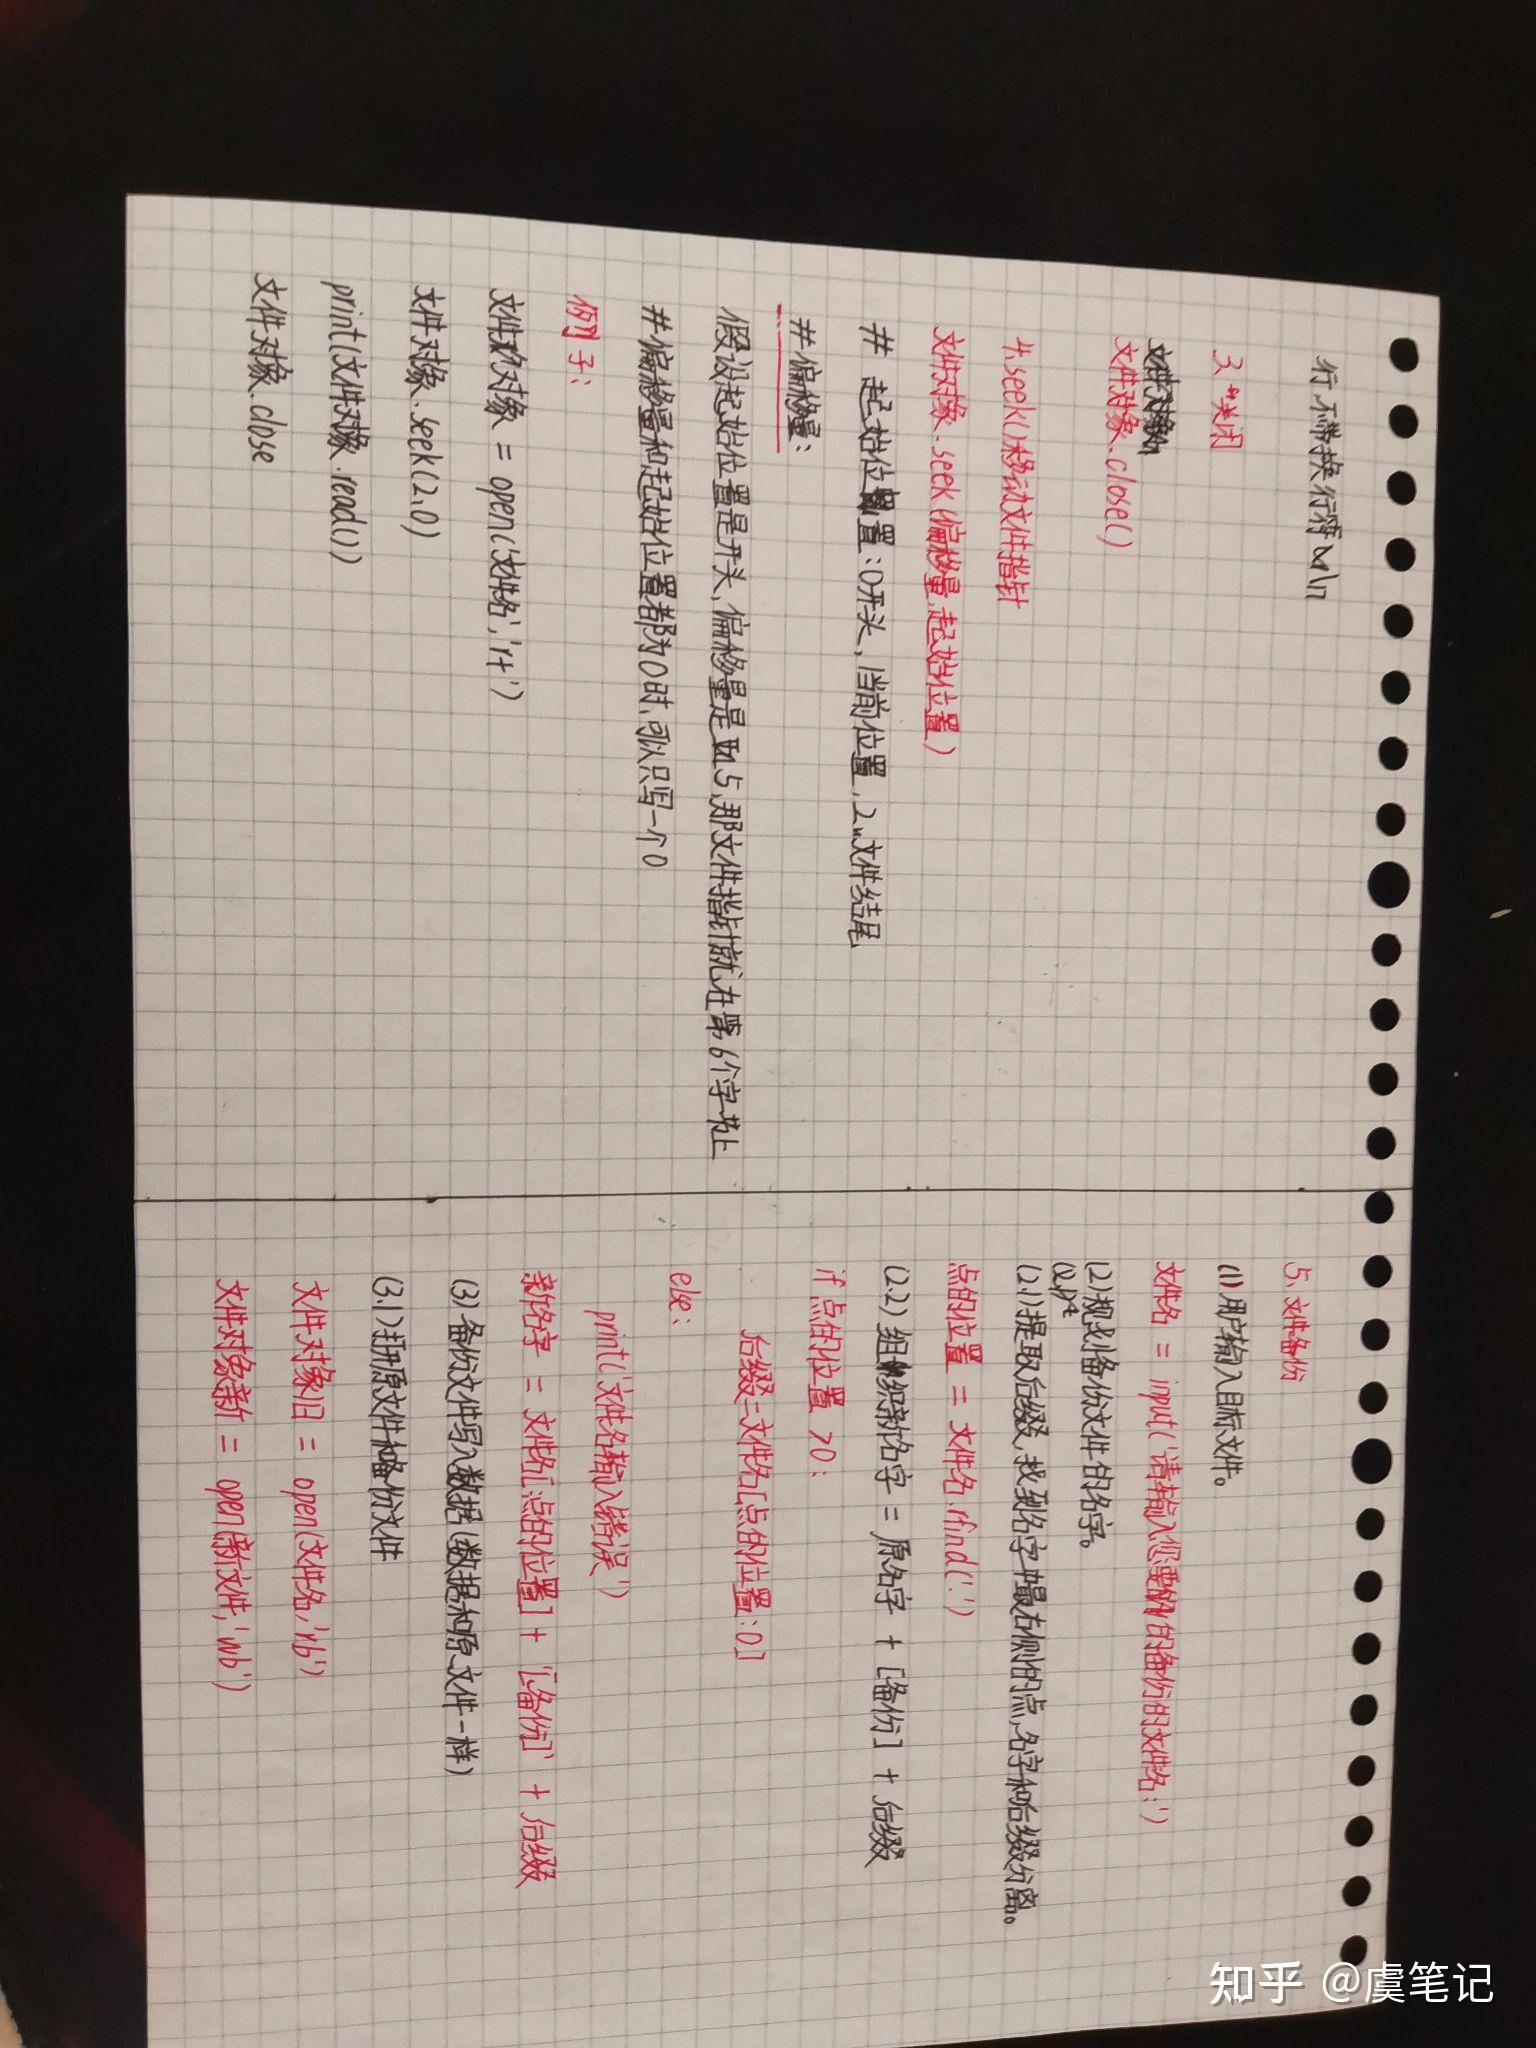 行,不带换行符\n
3.关闭
文件对象.close()
4.seek()移动文件指针
文件对象.seek(偏移量,起始位置)
# 起始位置:0开头,1当前位置,2文件结尾
#偏移量:
假设起始位置是开头,偏移量是取5,那文件指针就在第6个字节上
#偏移量和起始位置都为0时,可以只写一个0
例子:
文件对象 = open('文件名','r+')
文件对象.seek(2,0)
print(文件对象.read())
文件对象.close
5.文件备份
(1)用户输入目标文件。
文件名 = input('请输入您要的备份的文件名:')
(2)规划备份文件的名字。
(2.1)提取后缀,找到名字中最右侧的点,名字和后缀分离。
点的位置 = 文件名.rfind('.')
(2.2)组织新名字 = 原名字 + [备份] + 后缀
if 点的位置 >0:
后缀=文件名[点的位置:0]
else:
print('文件名输入错误')
新名字 = 文件名[:点的位置] + '[备份]' + 后缀
(3)备份文件写入数据(数据和原文件一样)
(3.1)打开原文件和备份文件
文件对象旧 = open(文件名,'rb')
文件对象新 = open(新文件,'wb')
知乎 @虞笔记